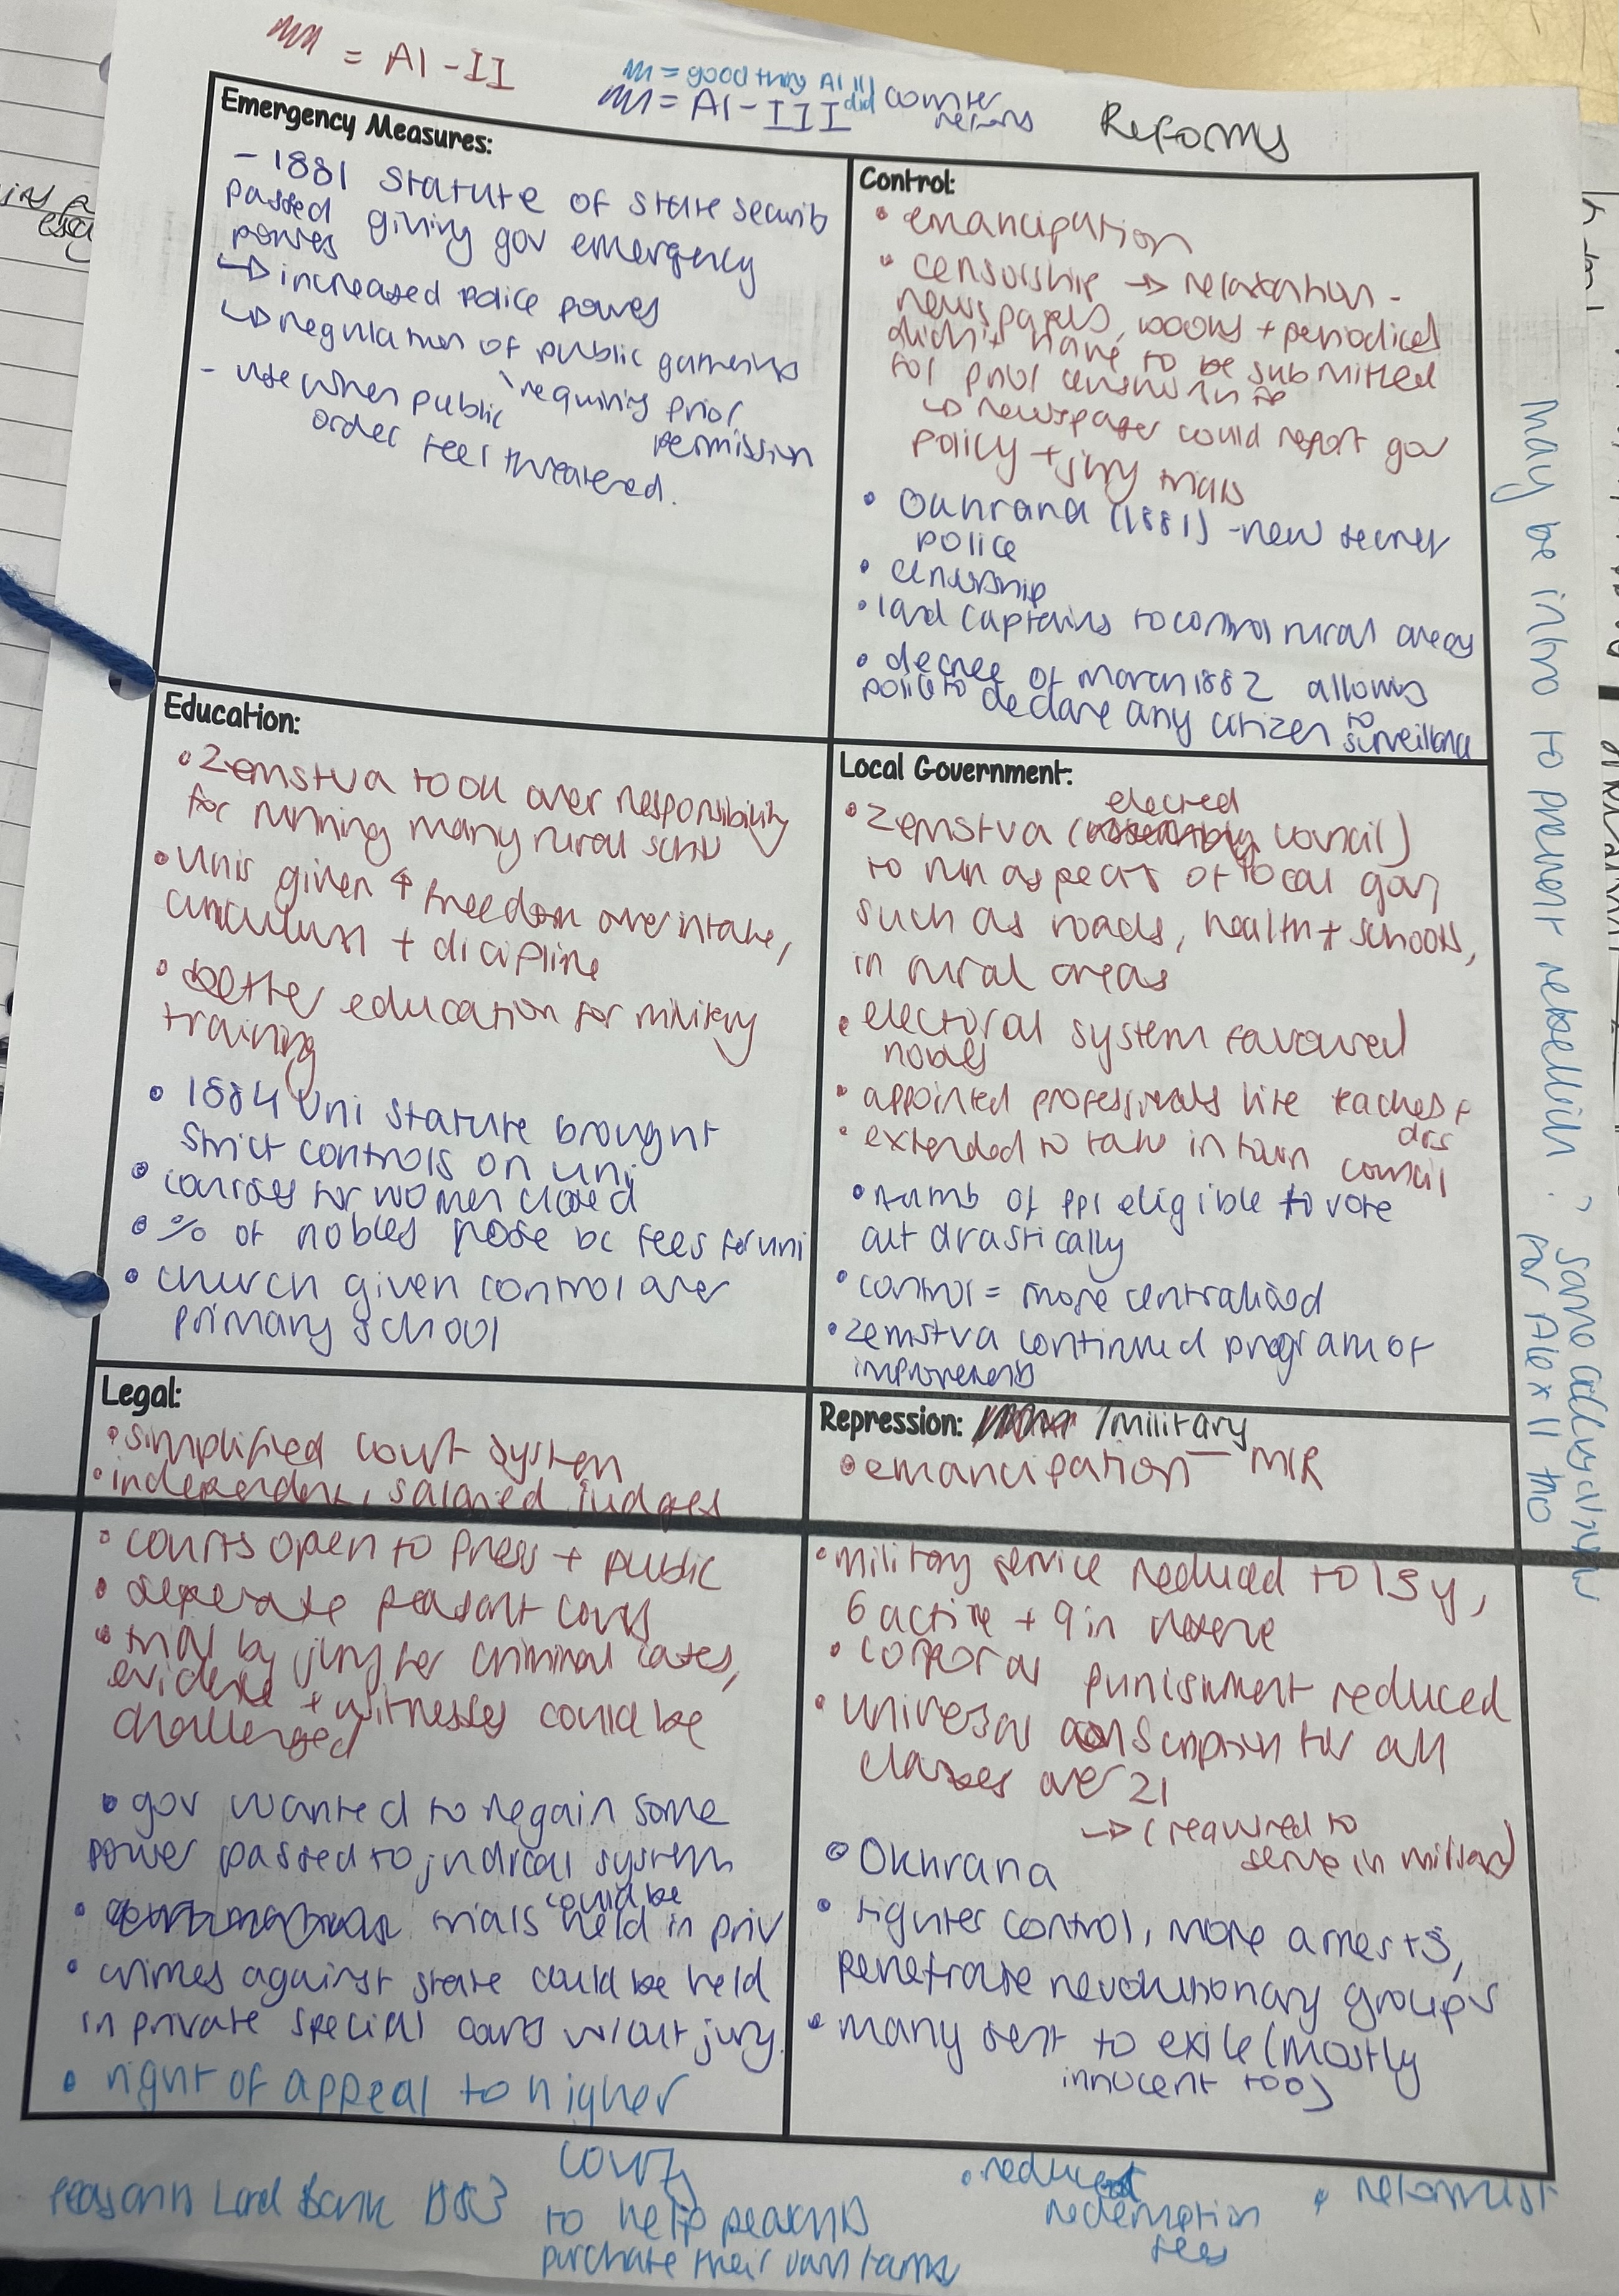 = Al - II
= good thing Al III did
= Al - III counter reforms
Reforms
Emergency Measures:
- 1881 Statute of state security
passed giving gov emergency
powers
↳ increased police powers
↳ regulation of public gatherings
requiring prior
permission
- use when public
order feel threatened.
Control:
• emancipation
• censorship → relaxation -
newspapers, books + periodicals
didn't have to be submitted
for prior
↳ newspaper could report gov
policy + jury trials
• Okhrana (1881) - new secret
police
• censorship
• land captains to control rural areas
• decree of March 1882 allows
police to declare any citizen to
surveillance
Education:
• Zemstva took over responsibility
for running many rural
• unis given ↑ freedom over intake,
curriculum + dicipline
• better education for military
training
• 1884 Uni Statute brought
strict controls on uni
• courses for women closed
• % of nobles rose bc fees for uni
• church given control over
primary school
Local Government:
• Zemstva (elected council)
to run aspects of local gov,
such as roads, health + schools,
in rural areas
• electoral system favoured
nobles
• appointed professionals like teachers +
drs
• extended to take in town council
• numb of ppl eligible to vote
cut drastically
• control = more centralised
• zemstva continued program of
improvements
Legal:
• simplified court system
• independent, salaried judges
• courts open to press + public
• seperate peasant courts
• trial by jury for criminal cases,
evidence + witnesses could be
challenged
• gov wanted to regain some
power passed to judical system
• trials could be held in priv
• crimes against state could be held
in private special courts w/out jury.
• right of appeal to higher
courts
Repression: /military
• emancipation — MIR
• military service reduced to 15y,
6 active + 9 in reserve
• corporal punishment reduced
• universal conscription for all
classes over 21
→ (required to
serve in military)
• Okhrana
• tighter control, more arrests,
penetrate revolutionary groups
• many sent to exile (mostly
innocent too)
Peasants Land Bank 1883
to help peasants
purchase their own farms
• reduced
redemption
fees
• reformist
May be intro to prevent rebellion?
same
for Alex II tho